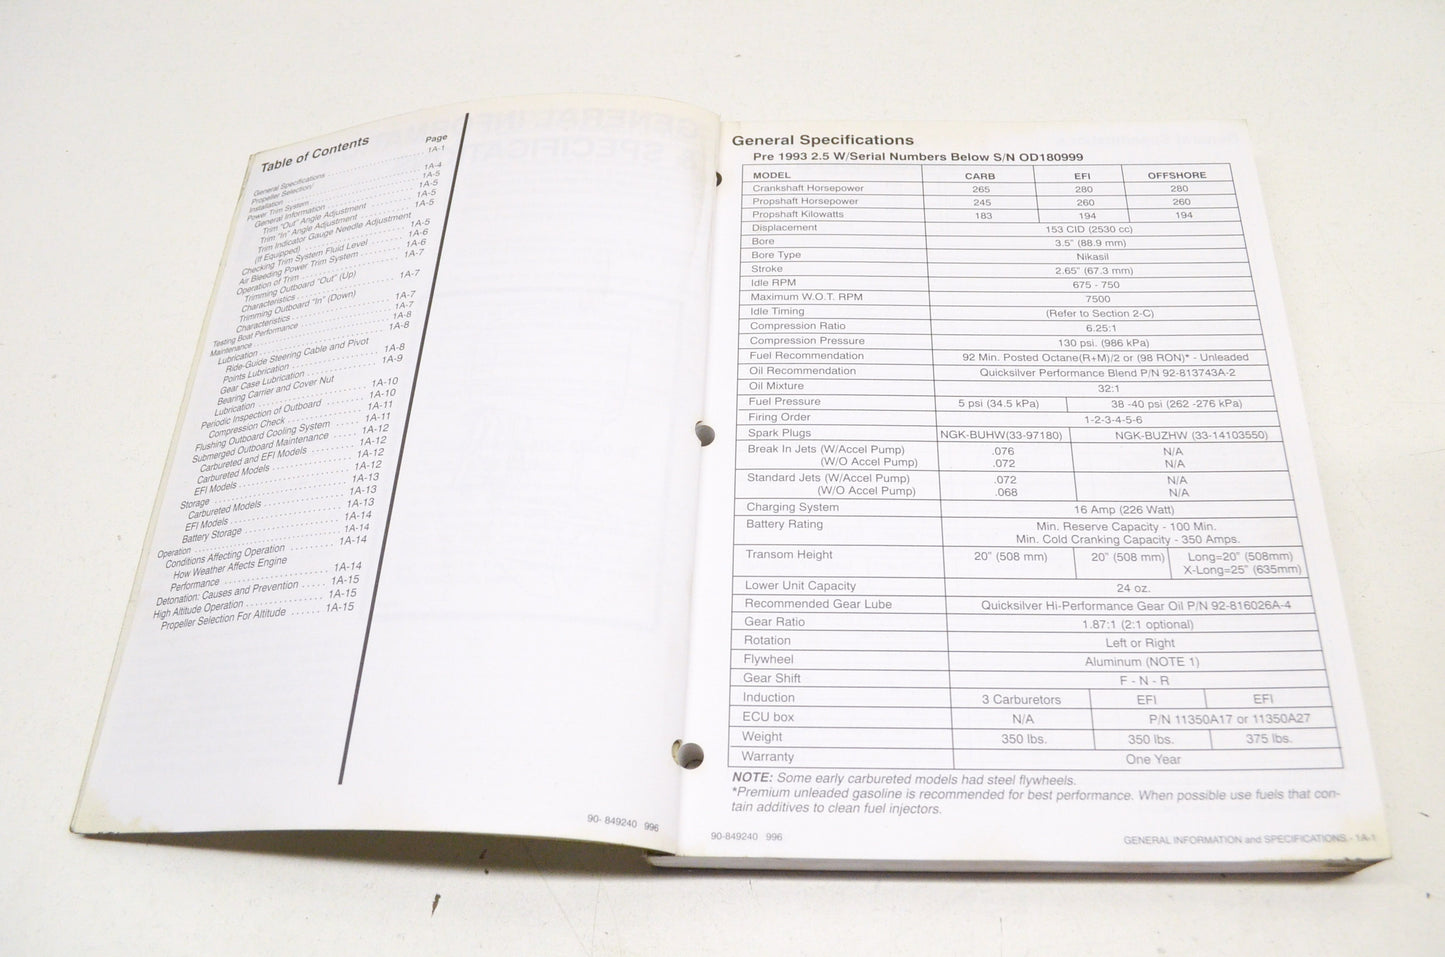 Table of Contents
Page
General Specifications . . . . . . . . . . . . . . . . . . 1A-1
Propeller Selection/
Installation . . . . . . . . . . . . . . . . . . . . . . . . . . . 1A-4
Power Trim System . . . . . . . . . . . . . . . . . . . . 1A-5
General Information . . . . . . . . . . . . . . . . . . 1A-5
Trim "Out" Angle Adjustment . . . . . . . . 1A-5
Trim "In" Angle Adjustment . . . . . . . . . 1A-5
Trim Indicator Gauge Needle Adjustment
(If Equipped) . . . . . . . . . . . . . . . . . . . . 1A-5
Checking Trim System Fluid Level . . . . . . 1A-6
Air Bleeding Power Trim System . . . . . . . 1A-6
Operation of Trim . . . . . . . . . . . . . . . . . . . 1A-7
Trimming Outboard "Out" (Up)
Characteristics . . . . . . . . . . . . . . . . . . . 1A-7
Trimming Outboard "In" (Down)
Characteristics . . . . . . . . . . . . . . . . . . . 1A-7
Testing Boat Performance . . . . . . . . . . . . . 1A-7
Maintenance . . . . . . . . . . . . . . . . . . . . . . . . 1A-8
Lubrication . . . . . . . . . . . . . . . . . . . . . . . . 1A-8
Ride-Guide Steering Cable and Pivot
Points Lubrication . . . . . . . . . . . . . . . . 1A-8
Gear Case Lubrication . . . . . . . . . . . . . . 1A-9
Bearing Carrier and Cover Nut
Lubrication . . . . . . . . . . . . . . . . . . . . . . 1A-10
Periodic Inspection of Outboard . . . . . . . . 1A-10
Compression Check . . . . . . . . . . . . . . . . 1A-11
Flushing Outboard Cooling System . . . . . 1A-11
Submerged Outboard Maintenance . . . . . 1A-12
Carbureted and EFI Models . . . . . . . . . 1A-12
Carbureted Models . . . . . . . . . . . . . . . . 1A-12
EFI Models . . . . . . . . . . . . . . . . . . . . . . 1A-12
Storage . . . . . . . . . . . . . . . . . . . . . . . . . . . 1A-13
Carbureted Models . . . . . . . . . . . . . . . . 1A-13
EFI Models . . . . . . . . . . . . . . . . . . . . . . 1A-13
Battery Storage . . . . . . . . . . . . . . . . . . . 1A-14
Operation . . . . . . . . . . . . . . . . . . . . . . . . . 1A-14
Conditions Affecting Operation . . . . . . . . 1A-14
How Weather Affects Engine
Performance . . . . . . . . . . . . . . . . . . . . 1A-14
Detonation: Causes and Prevention . . . . . 1A-15
High Altitude Operation . . . . . . . . . . . . . . 1A-15
Propeller Selection For Altitude . . . . . . 1A-15
90- 849240 996
General Specifications
Pre 1993 2.5 W/Serial Numbers Below S/N OD180999
MODEL CARB EFI OFFSHORE
Crankshaft Horsepower 265 280 280
Propshaft Horsepower 245 260 260
Propshaft Kilowatts 183 194 194
Displacement 153 CID (2530 cc)
Bore 3.5" (88.9 mm)
Bore Type Nikasil
Stroke 2.65" (67.3 mm)
Idle RPM 675 - 750
Maximum W.O.T. RPM 7500
Idle Timing (Refer to Section 2-C)
Compression Ratio 6.25:1
Compression Pressure 130 psi. (986 kPa)
Fuel Recommendation 92 Min. Posted Octane(R+M)/2 or (98 RON)* - Unleaded
Oil Recommendation Quicksilver Performance Blend P/N 92-813743A-2
Oil Mixture 32:1
Fuel Pressure 5 psi (34.5 kPa) 38 -40 psi (262 -276 kPa)
Firing Order 1-2-3-4-5-6
Spark Plugs NGK-BUHW(33-97180) NGK-BUZHW (33-14103550)
Break In Jets (W/Accel Pump) .076 N/A
(W/O Accel Pump) .072 N/A
Standard Jets (W/Accel Pump) .072 N/A
(W/O Accel Pump) .068 N/A
Charging System 16 Amp (226 Watt)
Battery Rating Min. Reserve Capacity - 100 Min.
Min. Cold Cranking Capacity - 350 Amps.
Transom Height 20" (508 mm) 20" (508 mm) Long=20" (508mm)
X-Long=25" (635mm)
Lower Unit Capacity 24 oz.
Recommended Gear Lube Quicksilver Hi-Performance Gear Oil P/N 92-816026A-4
Gear Ratio 1.87:1 (2:1 optional)
Rotation Left or Right
Flywheel Aluminum (NOTE 1)
Gear Shift F - N - R
Induction 3 Carburetors EFI EFI
ECU box N/A P/N 11350A17 or 11350A27
Weight 350 lbs. 350 lbs. 375 lbs.
Warranty One Year
NOTE: Some early carbureted models had steel flywheels.
*Premium unleaded gasoline is recommended for best performance. When possible use fuels that con-
tain additives to clean fuel injectors.
90-849240 996
GENERAL INFORMATION and SPECIFICATIONS - 1A-1